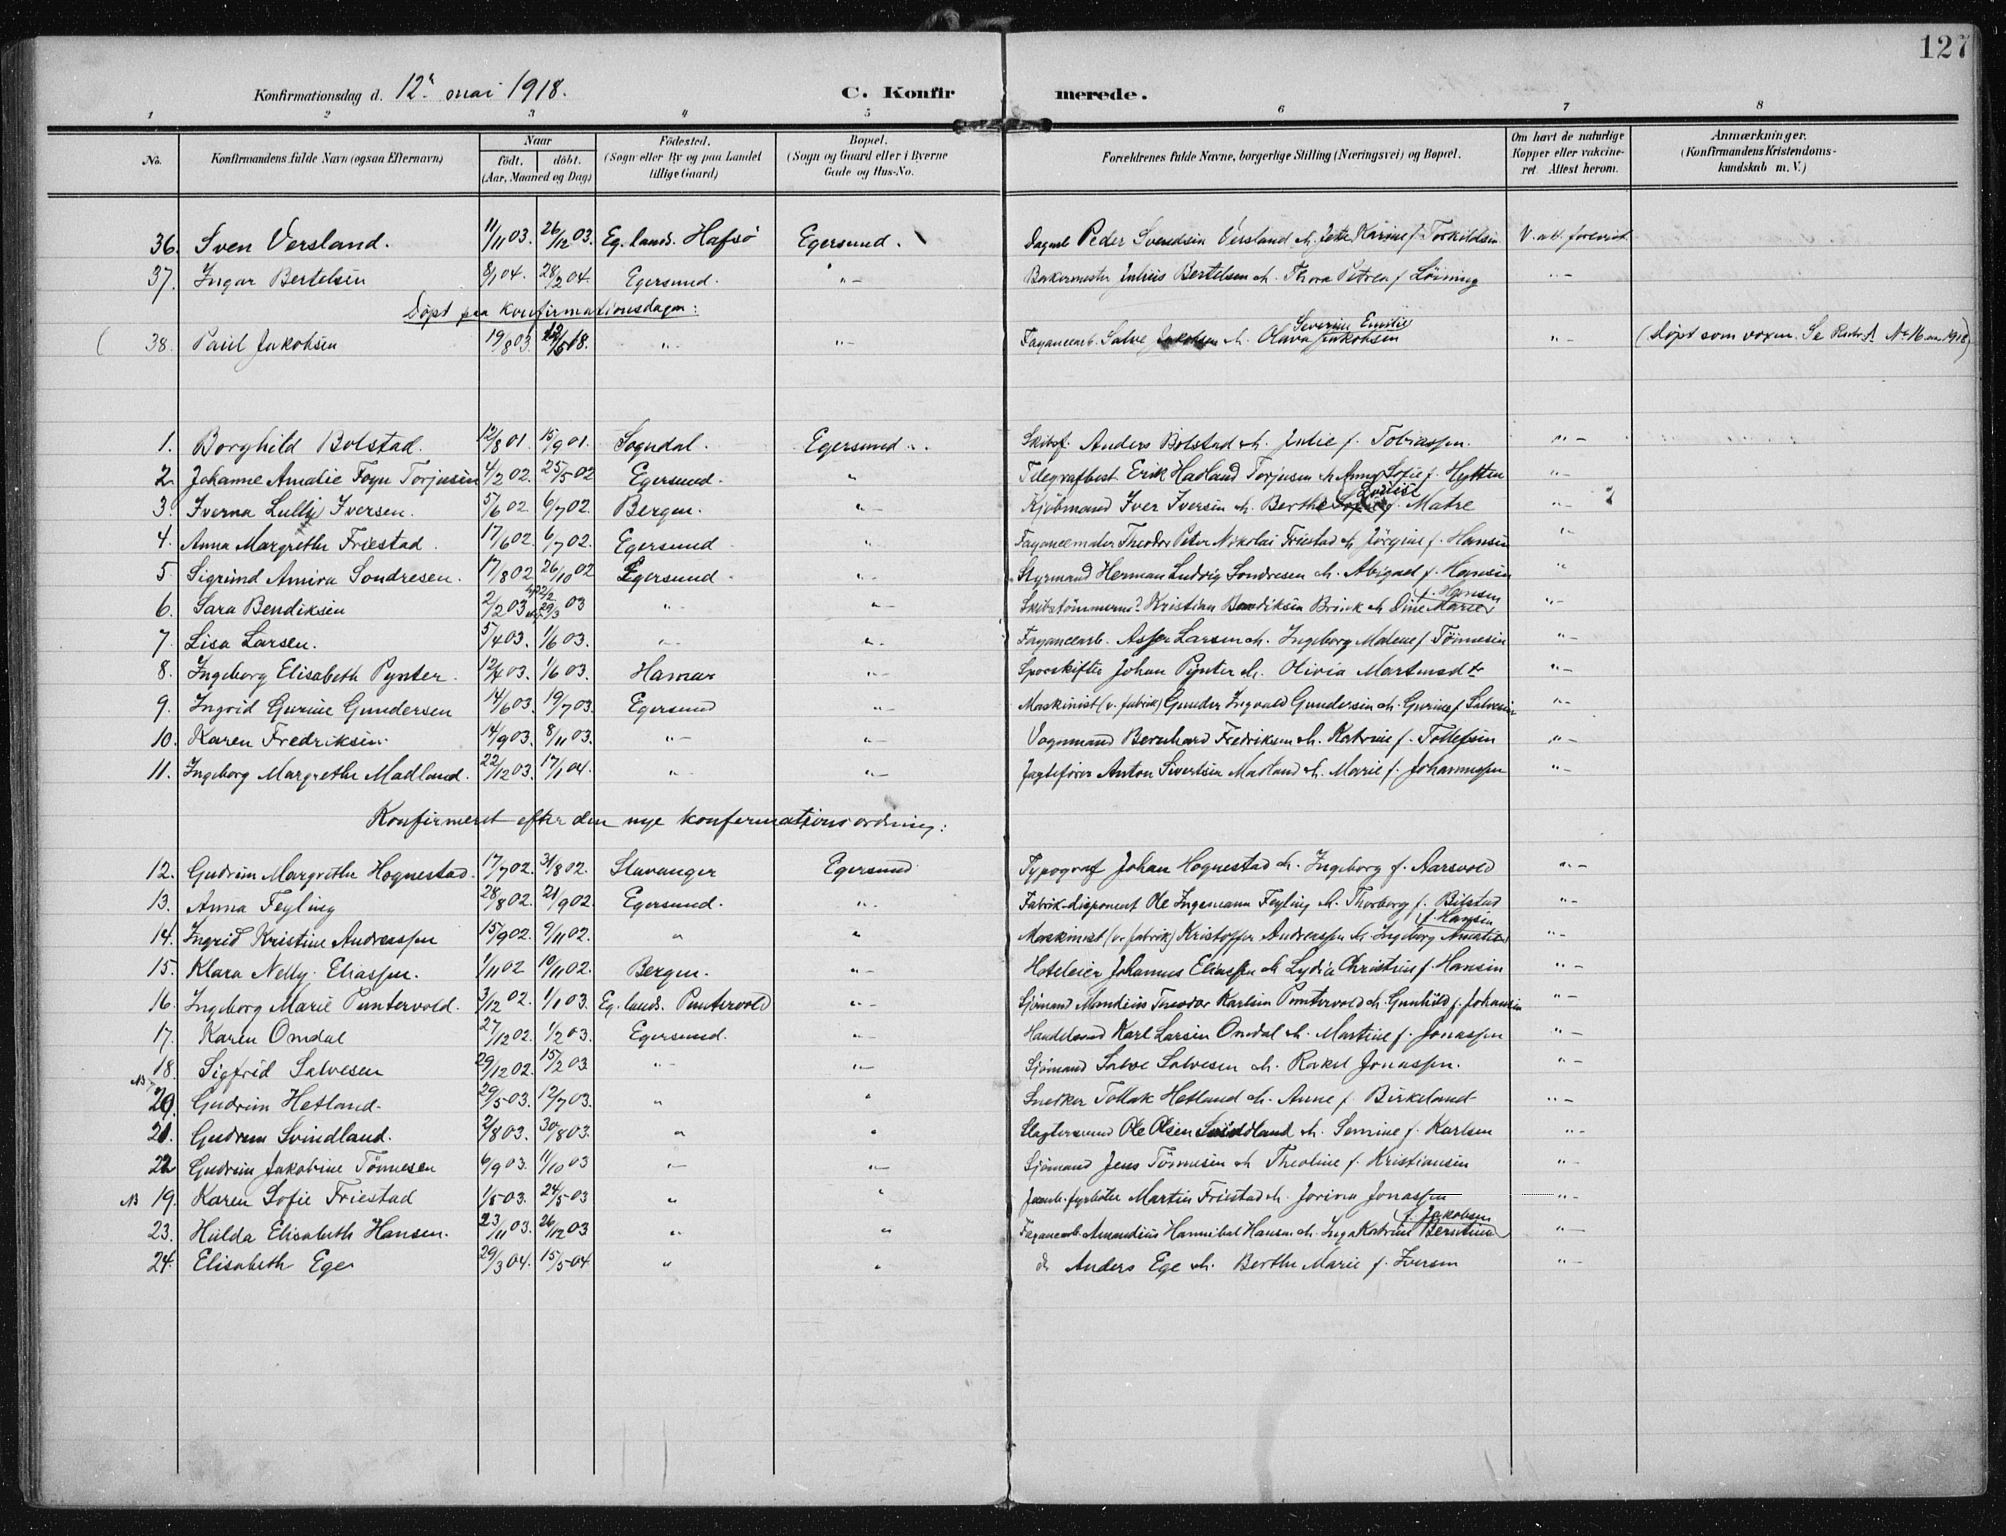 127
Konfirmationsdag d. 12' mai 1918. C. Konfirmerede.
1 2 3 4 5 6 7 8
No. Konfirmandens fulde Navn (ogsaa Efternavn) Naar født. døbt. (Aar, Maaned og Dag) Fødested. (Sogn eller By og paa Landet tillige Gaard) Bopæl. (Sogn og Gaard eller i Byerne Gade og Hus-No. Forældrenes fulde Navne, borgerlige Stilling (Næringsvei) og Bopæl. Om havt de naturlige Kopper eller vakcineret. Attest herom. Anmærkninger. (Konfirmandens Kristendomskundskab m. V.)
36. Sven Versland. 11/11 03. 26/12 03. Eg. lands. Hafsø Egersund. Peder Svendsen Versland Karine f. Torkildsen V. att. forevist
37. Ingar Bertelsen 8/1 04. 28/2 04. Egersund. "- Bakermester Julius Bertelsen & Thora Petrea f. Löining "-
Døpt paa konfirmationsdagen:
( 38. Paul Jakobsen 19/8 03. 12/5 18. "- "- Fayancearb. Salve Jakobsen & Olava Severine Emilie Jakobsen "- (døpt som voxen. Se No 16 1918)
1. Borghild Bolstad. 12/8 01. 15/9 01. Sogndal. Egersund. Skibsf. Anders Bolstad & Julie f. Tobiassen. "-
2. Johanne Amalie Foyn Torjusen 4/2 02. 25/5 02 Egersund. " Telegrafbest. Erik Hadland Torjusen & Anna Sofie f. Hytten "-
3. Iverna Lulli Iversen. 5/6 02. 6/7 02. Bergen. "- Kjöbmand Iver Iversen & Berthe Lovise f. Matre "-
4. Anna Margrethe Friestad. 17/6 02. 6/7 02. Egersund "- Fayancemaler Theodor Peter Nikolai Friestad & Jörgine f. Hansen "-
5. Sigrund Amira Sondresen. 17/8 02. 26/10 02 Egersund. "- Styrmand Herman Ludvig Sondresen & Abigael f. Hansen "
6. Sara Bendiksen 2/2 03 22/2 29/3 03 "- "- Skibstömmerm? Kristian Bendiksen Brinck & Dine Marie f. Hansen "-
7. Lisa Larsen. 5/4 03. 1/6 03. "- "- Fayancearb. Asser Larsen & Ingeborg Malene f. Tönnesen "-
8. Ingeborg Elisabeth Pynter. 12/4 03. 1/6 03. Hamar "- Sporskifter Johan Pynter & Olivia Martinsdtr "-
9. Ingrid Gurine Gundersen 14/6 03. 19/7 03. Egersund "- Maskinist (v. fabrik) Gunder Ingvald Gundersen & Gurine f. Salvesen "-
10. Karen Fredriksen. 14/9 03. 8/11 03. "- "- Vognmand Bernhard Fredriksen & Katrine f. Tollefsen "-
11. Ingeborg Margrethe Madland. 22/12 03. 17/1 04. "- "- Jagtefører Anton Sivertsen Madland & Marie f. Johannessen "-
Konfirmeret efter den nye konfirmationsordning:
12. Gudrun Margrethe Hognestad. 17/7 02. 31/8 02. Stavanger Egersund Typograf Johan Hognestad & Ingeborg f. Aarsvold "-
13. Anna Feyling 28/8 02. 21/9 02. Egersund. "- Fabrik-disponent Ole Ingemann Feyling & Thorborg f. Bilstad "-
14. Ingrid Kristine Andreassen 15/9 02. 9/11 02. " " Maskinist (v. fabrik) Kristoffer Andreassen & Ingeborg Amalie f. Hansen "-
15. Klara Nelly Eliassen. 1/11 02 10/11 02. Bergen. "- Hoteleier Johannes Eliassen & Lydia Christine f. Hansen "-
16. Ingeborg Marie Puntervold. 3/12 02. 1/1 03. Eg. lands. Puntervold "- Sjömand Mondeius Theodor Karlsen Puntervold & Gunhild f. Johansen "-
17. Karen Omdal 27/12 02. 1/2 03. Egersund. "- Handelsmd Karl Larsen Omdal & Martine f. Jonassen "-
18. Sigfrid Salvesen 29/12 02. 15/2 03 "- "- Sjömand Salve Salvesen & Rakel Jonassen. "-
NB 20. Gudrun Hetland. 29/5 03. 12/7 03. " " Snekker Tollak Hetland & Anne f. Birkeland "-
21. Gudrun Svindland. 2/8 03. 30/8 03. " " Slagtersvend Ole Olsen Svindland & Semine f. Karlsen "-
22 Gudrun Jakobine Tönnesen 6/9 03. 11/10 03 "- "- Sjömand Jens Tönnesen & Theoline f. Kristiansen "-
NB 19. Karen Sofie Friestad 1/5 03. 24/5 03 " " Martin Friestad & Jorina Jonassen "-
23. Hulda Elisabeth Hansen. 23/11 03. 26/12 03 " " Fayancearb. Amandius Hannibal Hansen & Inga Katrine Berntine f. Jakobsen "-
24. Elisabeth Ege 29/3 04. 15/5 04. " " do Anders Ege & Berthe Marie f. Iversen "-